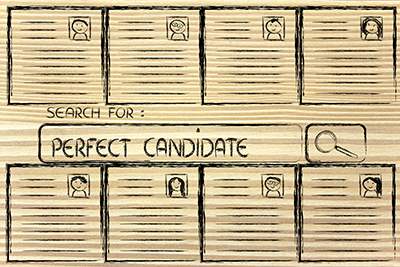 SEARCH FOR :
PERFECT CANDIDATE